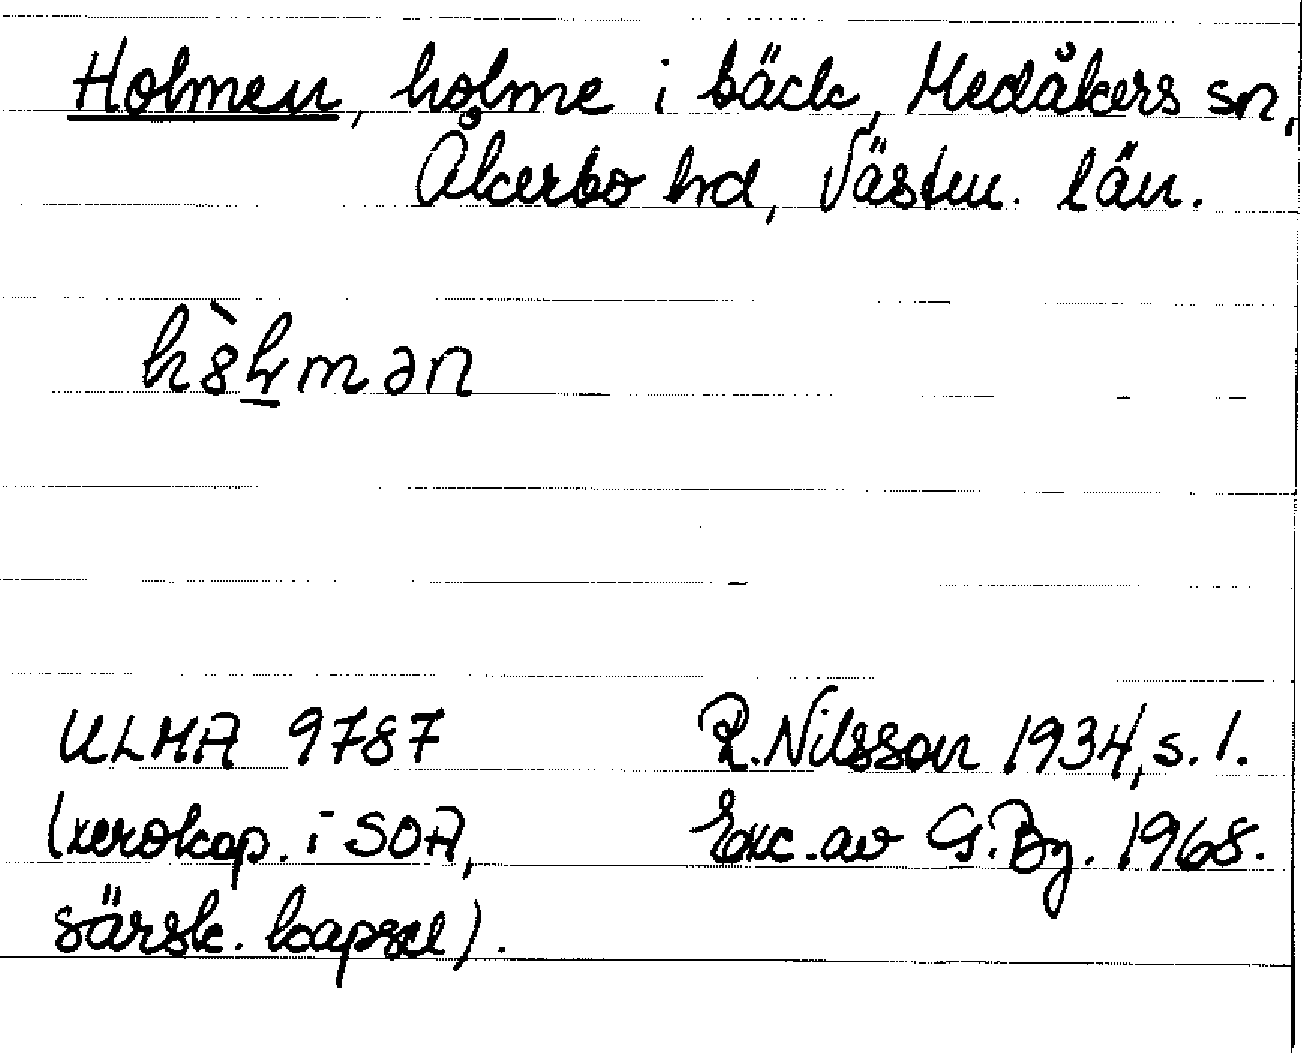 Holmen, holme i bäck, Medåkers sn,
Åkerbo hd, Västm. län.
ULMA 9787
(xerokop. i SOA,
särsk. kapsel).
R. Nilsson 1934, s. 1.
Exc. av G. By. 1968.